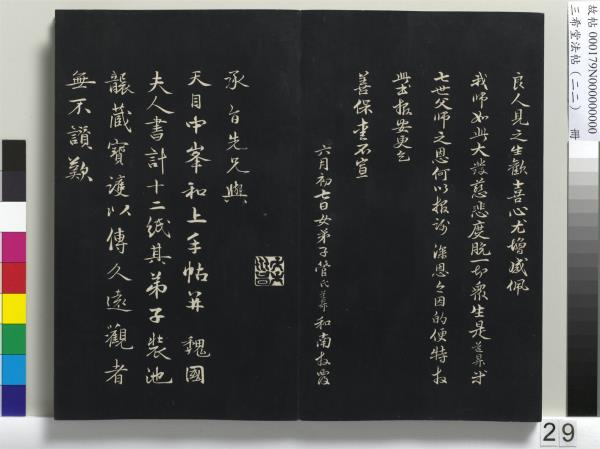 良人見之生歡喜心尤增感佩
我師如此大發慈悲度脫一切眾生是
七世父師之恩何以報訪深恩今因的便特
此報安更乞
善保重不宣
六月初七日女弟子管氏和南
承旨先兄與
天目中峯和上手帖并魏國
夫人書計十二紙其弟子裝池
襲藏寶護以傳久遠觀者
無不讚歎
故帖 000179N000000000
三希堂法帖(二二) 冊
29